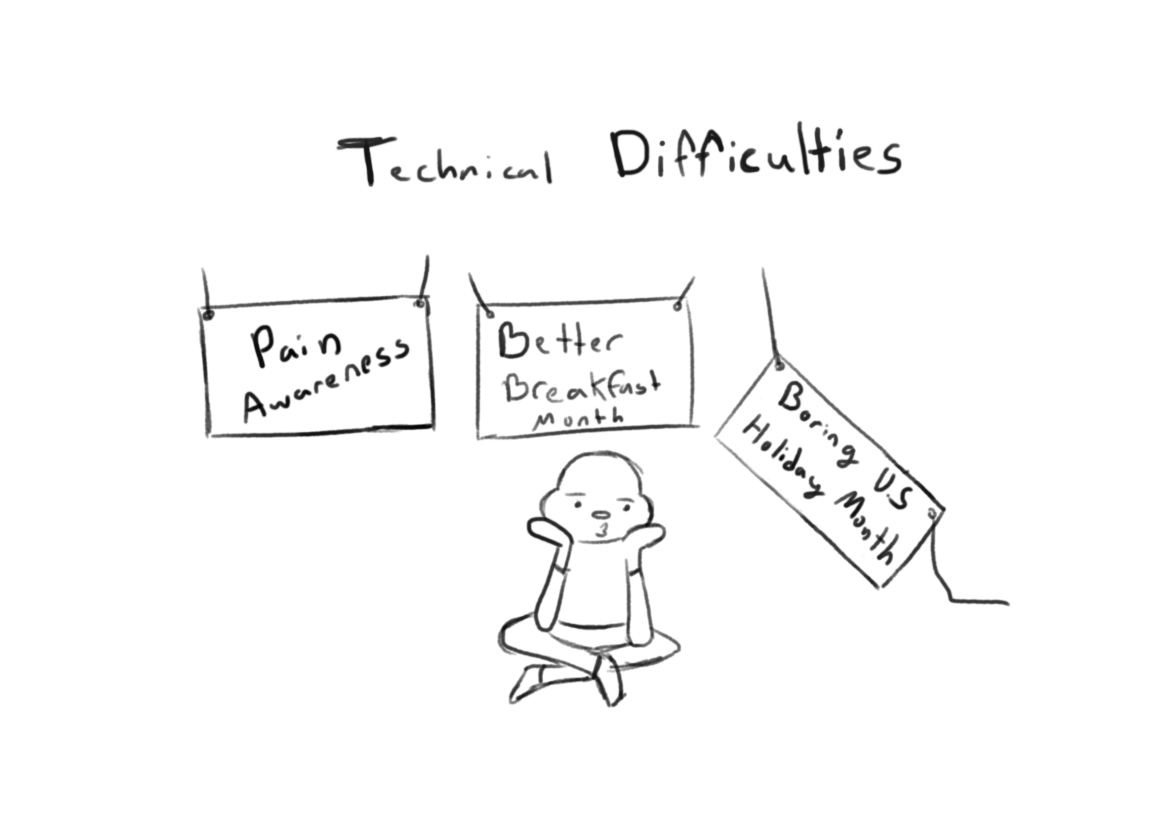 Technical Difficulties
Pain
Awareness
Better
Breakfast
Month
Boring U.S
Holiday Month